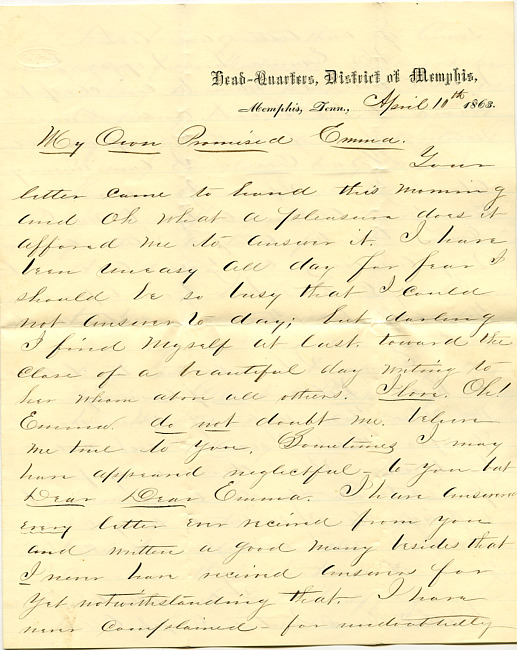 Head-Quarters, District of Memphis,
Memphis, Tenn., April 10th 1863.
My Own Promised Emma.
Your
letter came to hand this morning
and Oh what a pleasure does it
afford me to answer it. I have
been uneasy all day for fear I
should be so busy that I could
not answer to day; but darling
I find myself at last. toward the
close of a beautiful day writing to
her whom above all others. I love. Oh!
Emma. do not doubt me. believe
me true to you. Sometimes I may
have appeared neglectful – to you but
Dear Dear Emma. I have answered
every letter ever received from you
and written a good many beside that
I never have received answer for
yet notwithstanding that. I have
never complained – for undoubtedly